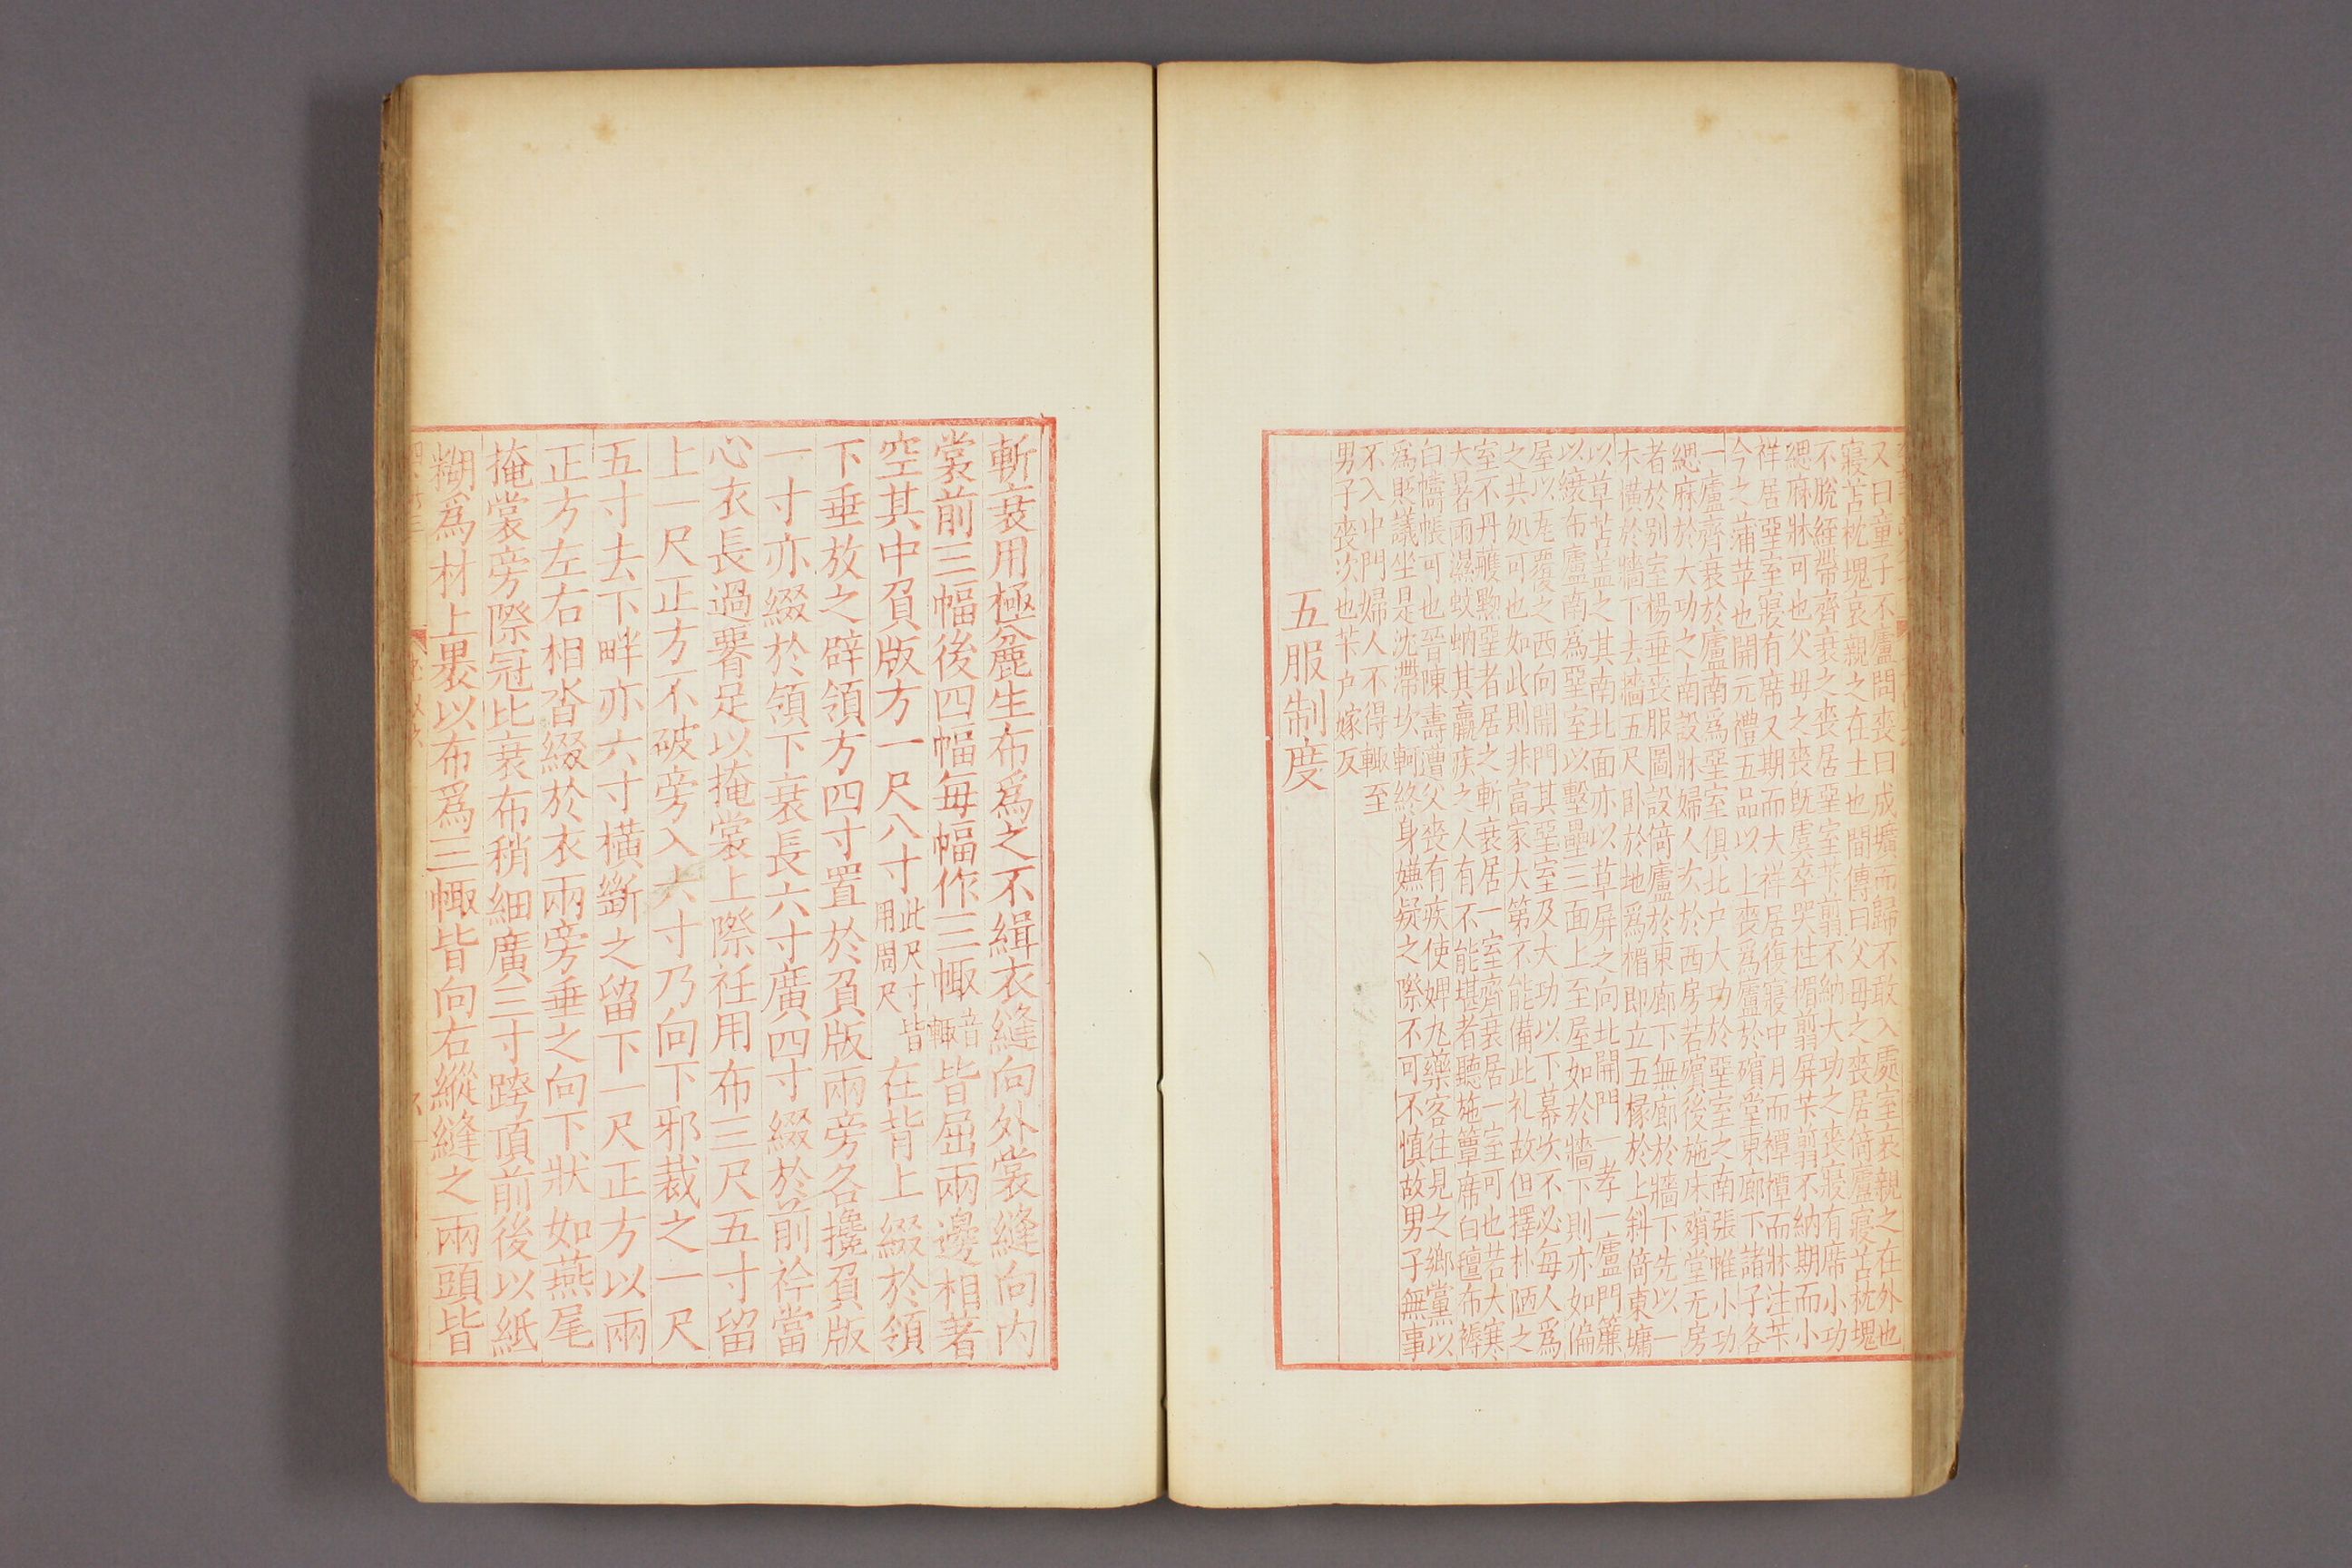 又曰童子不廬問喪曰成壙而歸不敢入處室哀親之在外也
寢苫枕塊哀親之在土也間傳曰父母之喪居倚廬寢苫枕塊
不脫絰帶齊衰之喪居堊室芐翦不納大功之喪寢有席小功
緦麻牀可也父母之喪旣虞卒哭柱楣翦屏芐翦不納期而小
祥居堊室寢有席又期而大祥居復寢中月而禫禫而牀注芐
今之蒲苹也開元禮五品以上喪爲廬於殯堂東廊下諸子各
一廬齊衰於廬南爲堊室俱北户大功於堊室之南張帷小功
緦麻於大功之南設牀婦人次於西房若殯後施床殯堂无房
者於别室楊垂喪服圖設倚廬於東廊下無廊於牆下先以一
木橫於牆下去牆五尺卧於地爲楣即立五椽於上斜倚東墉
以草苫盖之其南北面亦以草屏之向北開門一孝一廬門簾
以縗布廬南爲堊室以墼壘三面上至屋如於牆下則亦如偏
屋以瓦覆之西向開門其堊室及大功以下幕次不必每人爲
之共処可也如此則非富家大第不能備此礼故但擇朴陋之
室不丹雘黝堊者居之斬衰居一室齊衰居一室可也若大寒
大暑雨濕蚊蚋其羸疾之人有不能堪者聽施簟席白氊布褥
白幬帳可也晉陳壽遭父喪有疾使婢丸藥客往見之鄉黨以
爲貶議坐是沈滯坎軻終身嫌疑之際不可不慎故男子無事
不入中門婦人不得輒至
男子喪次也芐户嫁反
五服制度
斬衰用極麄生布爲之不緝衣縫向外裳縫向内
裳前三幅後四幅每幅作三㡇音輒皆屈兩邊相著
空其中負版方一尺八寸此尺寸皆用周尺在背上綴於領
下垂放之辟領方四寸置於負版兩旁各攙負版
一寸亦綴於領下衰長六寸廣四寸綴於前衿當
心衣長過䯗足以掩裳上際衽用布三尺五寸留
上一尺正方不破旁入六寸乃向下邪裁之一尺
五寸去下畔亦六寸橫斷之留下一尺正方以兩
正方左右相沓綴於衣兩旁垂之向下狀如燕尾
掩裳旁際冠比衰布稍細廣三寸跨頂前後以紙
糊爲材上裹以布爲三㡇皆向右縱縫之兩頭皆